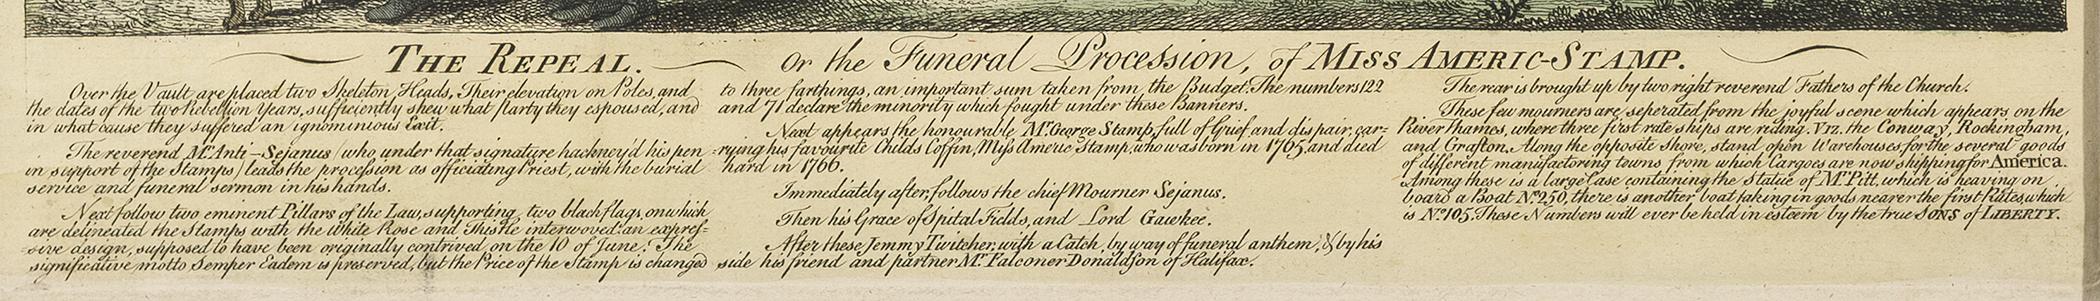 THE REPEAL. Or the Funeral Procession, of MISS AMERIC-STAMP.
Over the Vault are placed two Skeleton Heads, Their elevation on Poles, and
the dates of the two Rebellion Years, sufficiently shew what party they espoused, and
in what cause they suffered an ignominious Exit.
The reverend Mr. Anti-Sejanus (who under that signature hackney'd his pen
in support of the Stamps) leads the procession as officiating Priest, with the burial
service and funeral sermon in his hands.
Next follow two eminent Pillars of the Law, supporting two black flags, on which
are delineated the Stamps with the White Rose and Thistle interwoven: an expres-
sive design, supposed to have been originally contrived on the 10 of June. The
significative motto Semper Eadem is preserved, but the Price of the Stamp is changed
to three farthings, an important sum taken from the Budget. The numbers 122
and 71 declare the minority which fought under these Banners.
Next appears the honourable Mr. George Stamp, full of Grief and dispair, car=
=rying his favourite Childs Coffin, Miss Americ Stamp, who was born in 1765 and died
hard in 1766.
Immediately after, follows the chief Mourner Sejanus.
Then his Grace of Spital Fields, and Lord Gawkee.
After these Jemmy Twitcher, with a Catch, by way of funeral anthem, & by his
side his friend and partner Mr. Falconer Donaldson of Halifax.
The rear is brought up by two right reverend Fathers of the Church.
These few mourners are seperated from the joyful scene which appears on the
River Thames, where three first rate ships are riding. VIZ. the Conway, Rockingham,
and Grafton. Along the opposite Shore, stand open Warehouses, for the several goods
of different manufactoring towns from which Cargoes are now shipping for America.
Among these is a large Case containing the Statue of Mr. Pitt, which is heaving on
board a Boat No. 250, there is another boat taking in goods nearer the first Rates, which
is No. 105. These Numbers will ever be held in esteem by the true SONS of LIBERTY.